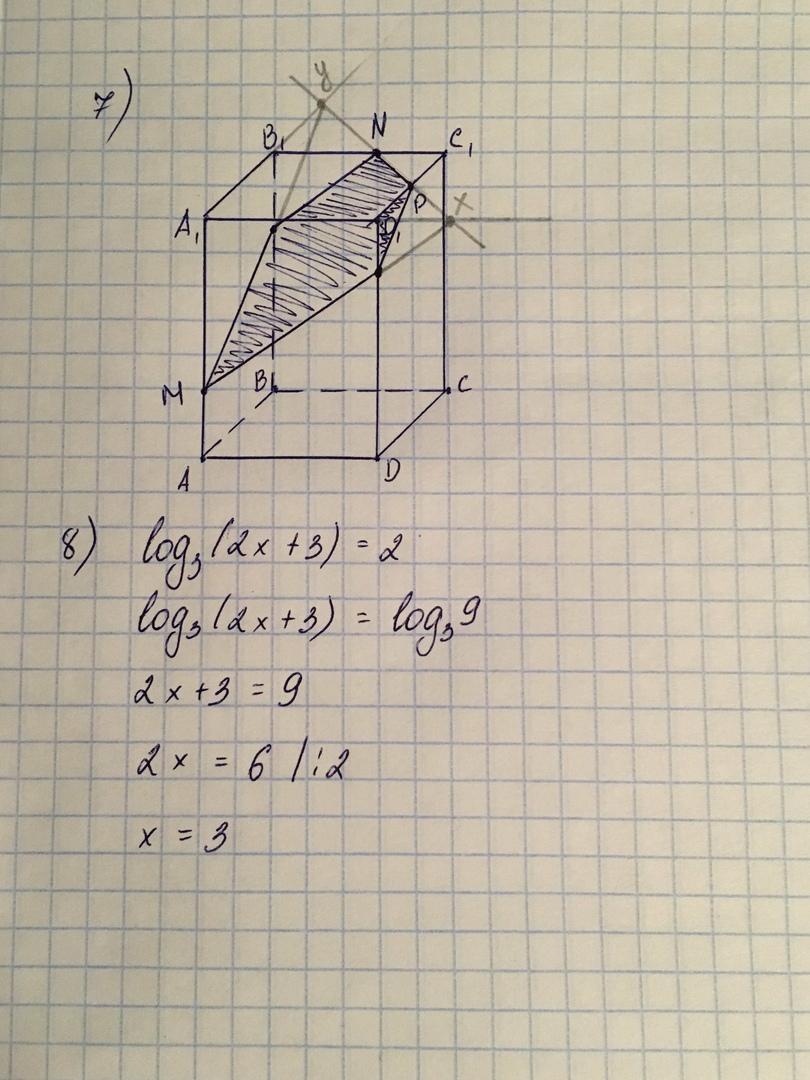 7)
y
B₁ N C₁
A₁ D₁ P x
M B C
A D
8) log₃(2x+3) = 2
log₃(2x+3) = log₃9
2x+3 = 9
2x = 6 /:2
x = 3